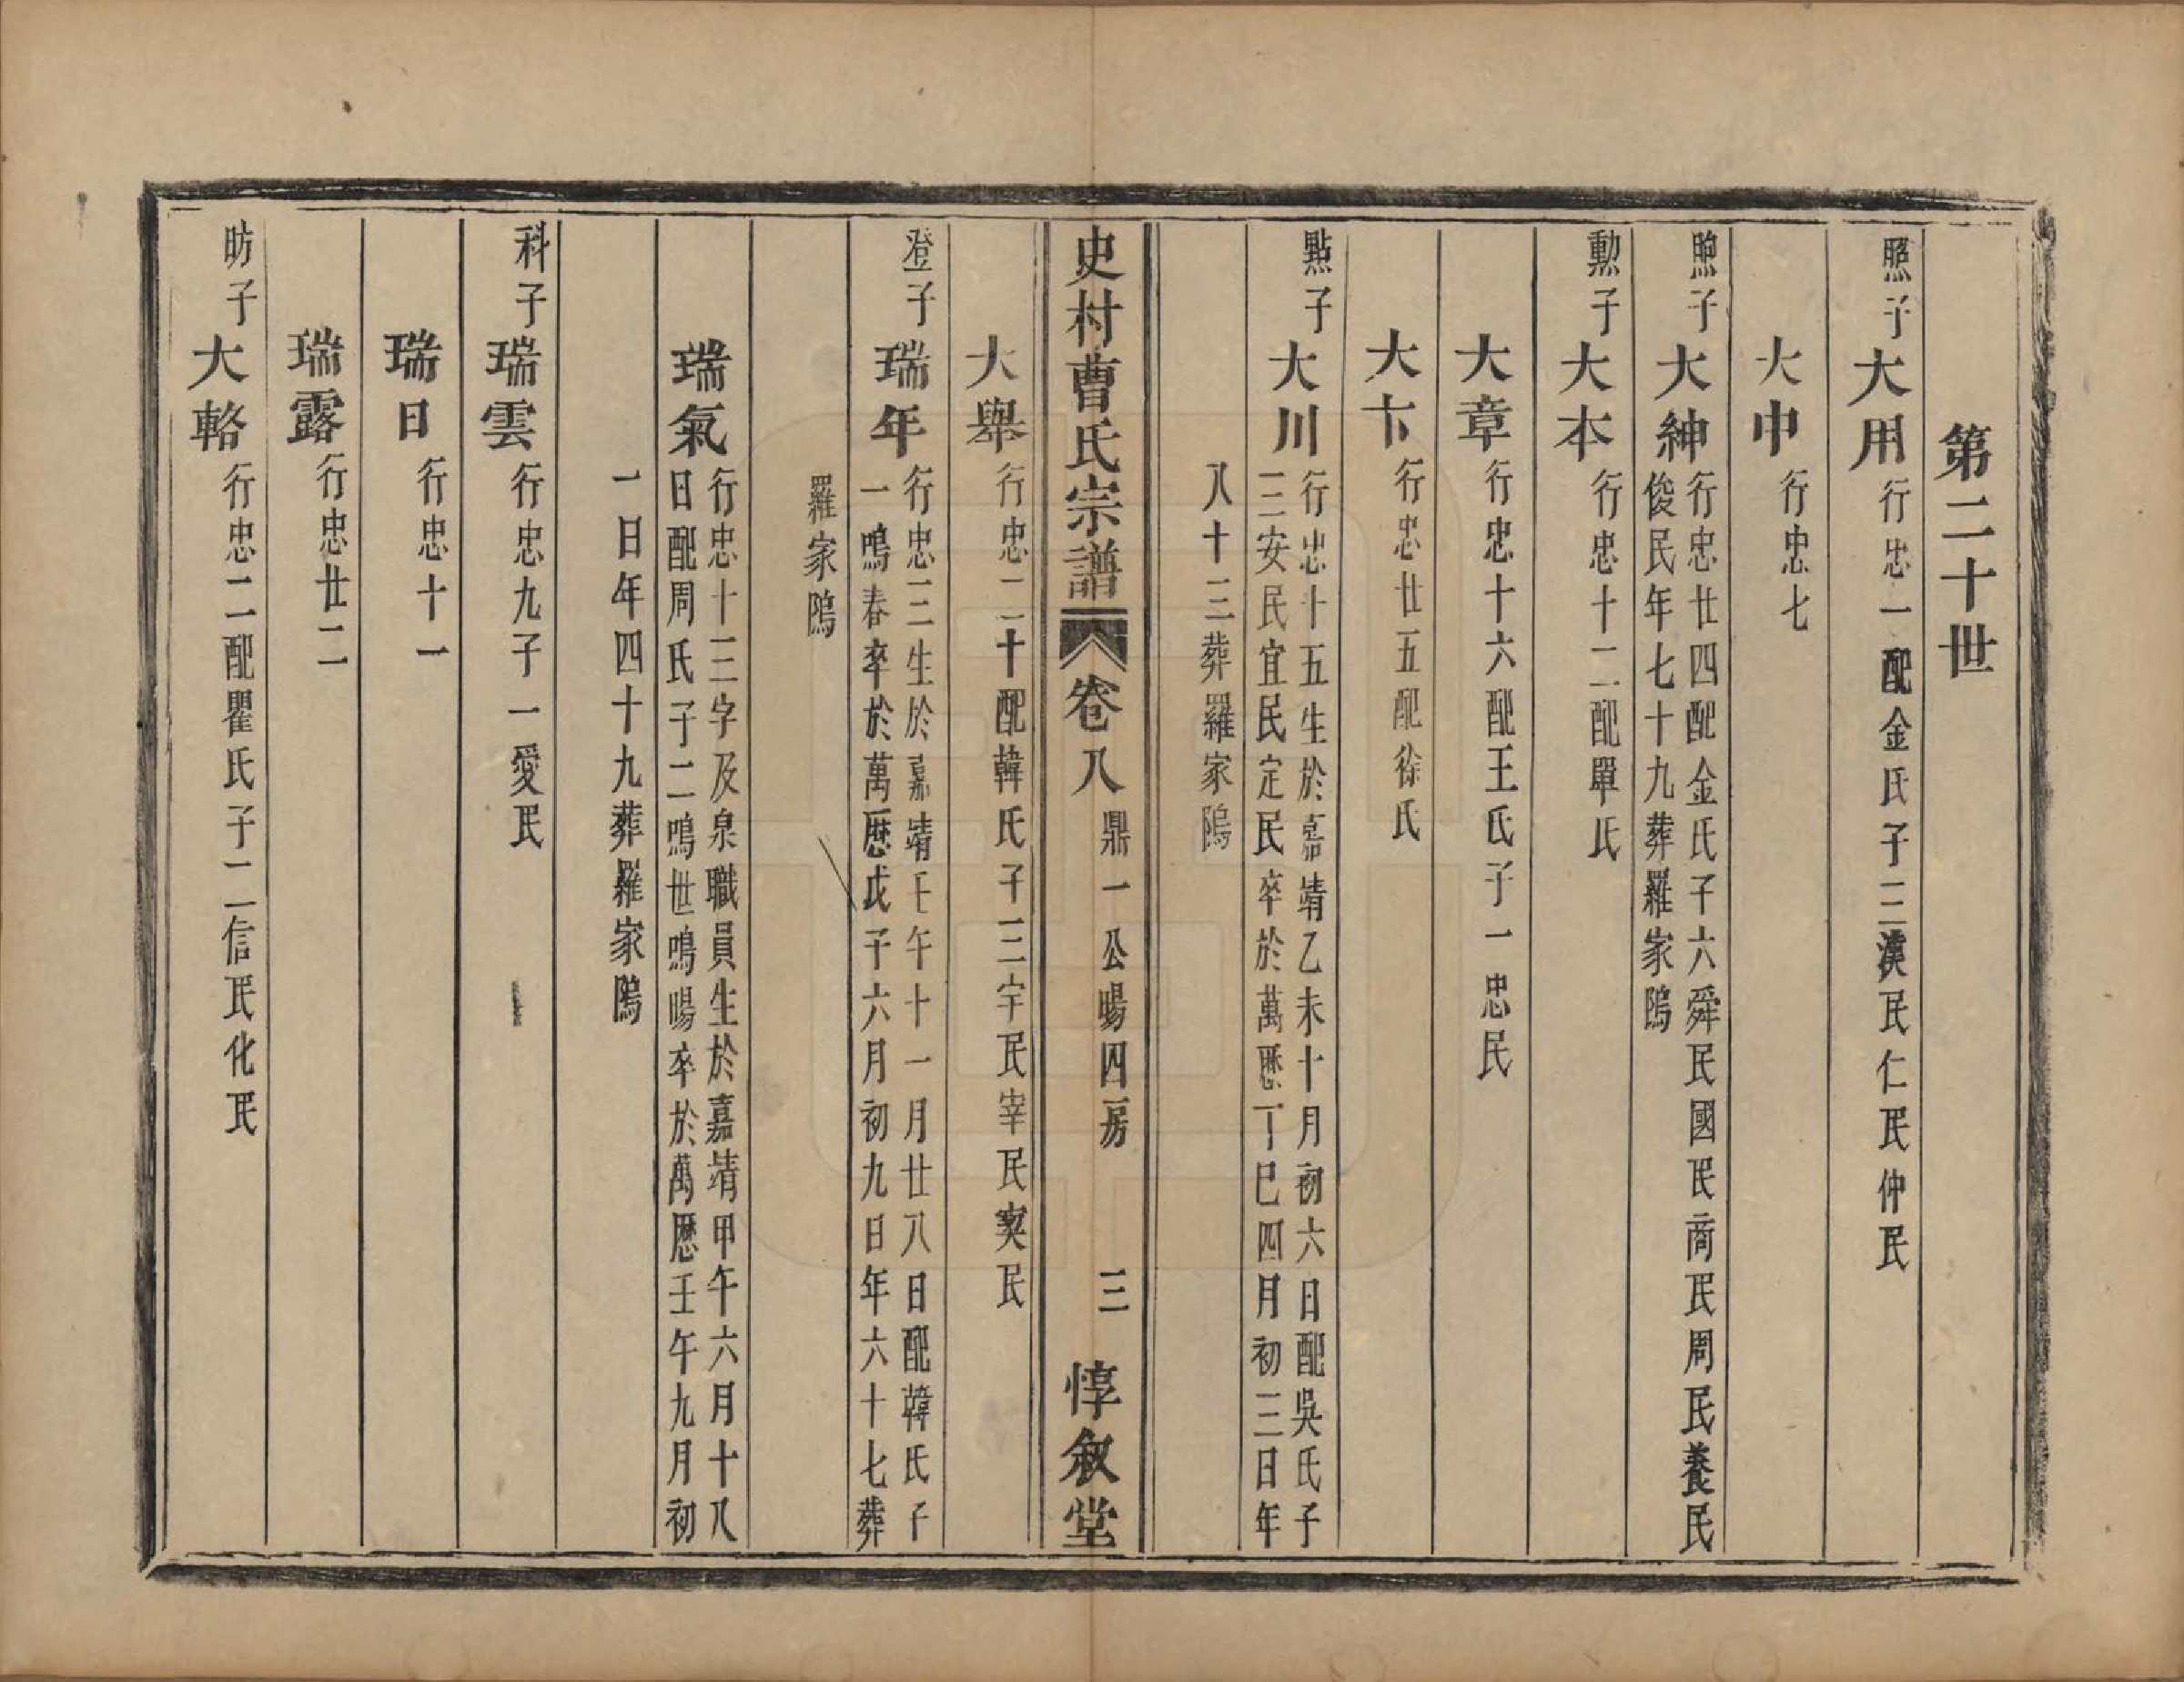 第二十世
照子 大用 行忠一配金氏子三漢民仁民仲民
大中 行忠七
煦子 大紳 行忠廿四配金氏子六舜民國民商民周民養民
俊民年七十九葬羅家隖
勳子 大本 行忠十二配單氏
大章 行忠十六配王氏子一忠民
大卞 行忠廿五配徐氏
點子 大川 行忠十五生於嘉靖乙未十月初六日配吳氏子
三安民宜民定民卒於萬歷丁巳四月初三日年
八十三葬羅家隖
史村曹氏宗譜 卷八 鼎一公暘四房 三 惇叙堂
大舉 行忠二十配韓氏子三宇民宰民寞民
登子 瑞年 行忠三生於嘉靖壬午十一月廿八日配韓氏子
一鳴春卒於萬歷戊子六月初九日年六十七葬
羅家隖
瑞氣 行忠十三字及泉職員生於嘉靖甲午六月十八
日配周氏子二鳴世鳴暘卒於萬歷壬午九月初
一日年四十九葬羅家隖
科子 瑞雲 行忠九子一愛民
瑞日 行忠十一
瑞露 行忠廿二
昉子 大輅 行忠二配瞿氏子二信民化民